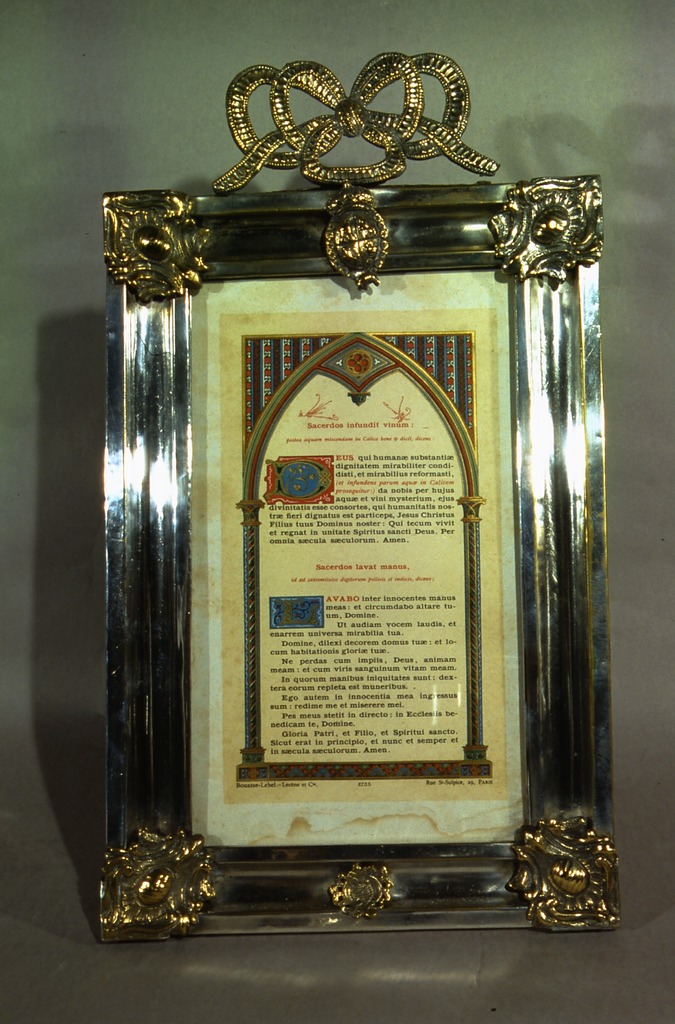 Sacerdos infundit vinum :
postea aquam miscendam in Calice bene & dicit, dicens :
DEUS qui humanæ substantiæ
dignitatem mirabiliter condi-
disti, et mirabilius reformasti,
(et infundens parum aquæ in Calicem
prosequitur:) da nobis per hujus
aquæ et vini mysterium, ejus
divinitatis esse consortes, qui humanitatis nos-
træ fieri dignatus est particeps, Jesus Christus
Filius tuus Dominus noster : Qui tecum vivit
et regnat in unitate Spiritus sancti Deus. Per
omnia sæcula sæculorum. Amen.
Sacerdos lavat manus,
id est extremitates digitorum pollicis et indicis, dicens :
LAVABO inter innocentes manus
meas : et circumdabo altare tu-
um, Domine.
Ut audiam vocem laudis, et
enarrem universa mirabilia tua.
Domine, dilexi decorem domus tuæ : et lo-
cum habitationis gloriæ tuæ.
Ne perdas cum impiis, Deus, animam
meam : et cum viris sanguinum vitam meam.
In quorum manibus iniquitates sunt : dex-
tera eorum repleta est muneribus.
Ego autem in innocentia mea ingressus
sum : redime me et miserere mei.
Pes meus stetit in directo : in Ecclesiis be-
nedicam te, Domine.
Gloria Patri, et Filio, et Spiritui sancto.
Sicut erat in principio, et nunc et semper et
in sæcula sæculorum. Amen.
Bouasse-Lebel.—Lecène et Cie. Rue St-Sulpice, 29, PARIS